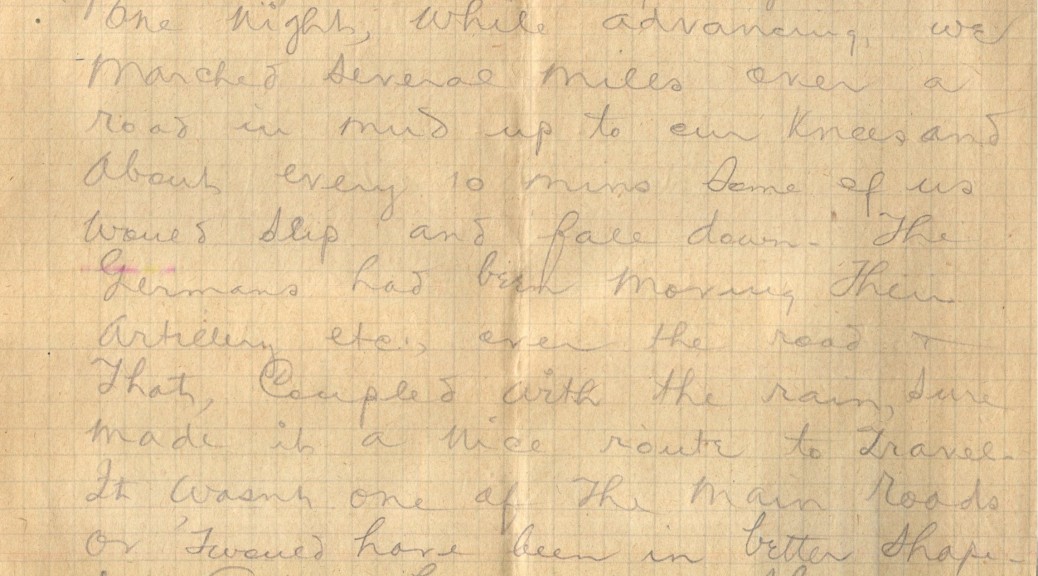 One night, while advancing, we
Marched several miles over a
road in mud up to our Knees and
About every 10 mins Some of us
would slip and fall down. The
Germans had been moving Their
Artillery etc., over the road &
That, Coupled with the rain, sure
made it a nice route to Travel.
It Wasnt one of The Main Roads
or 'twould have been in better Shape.